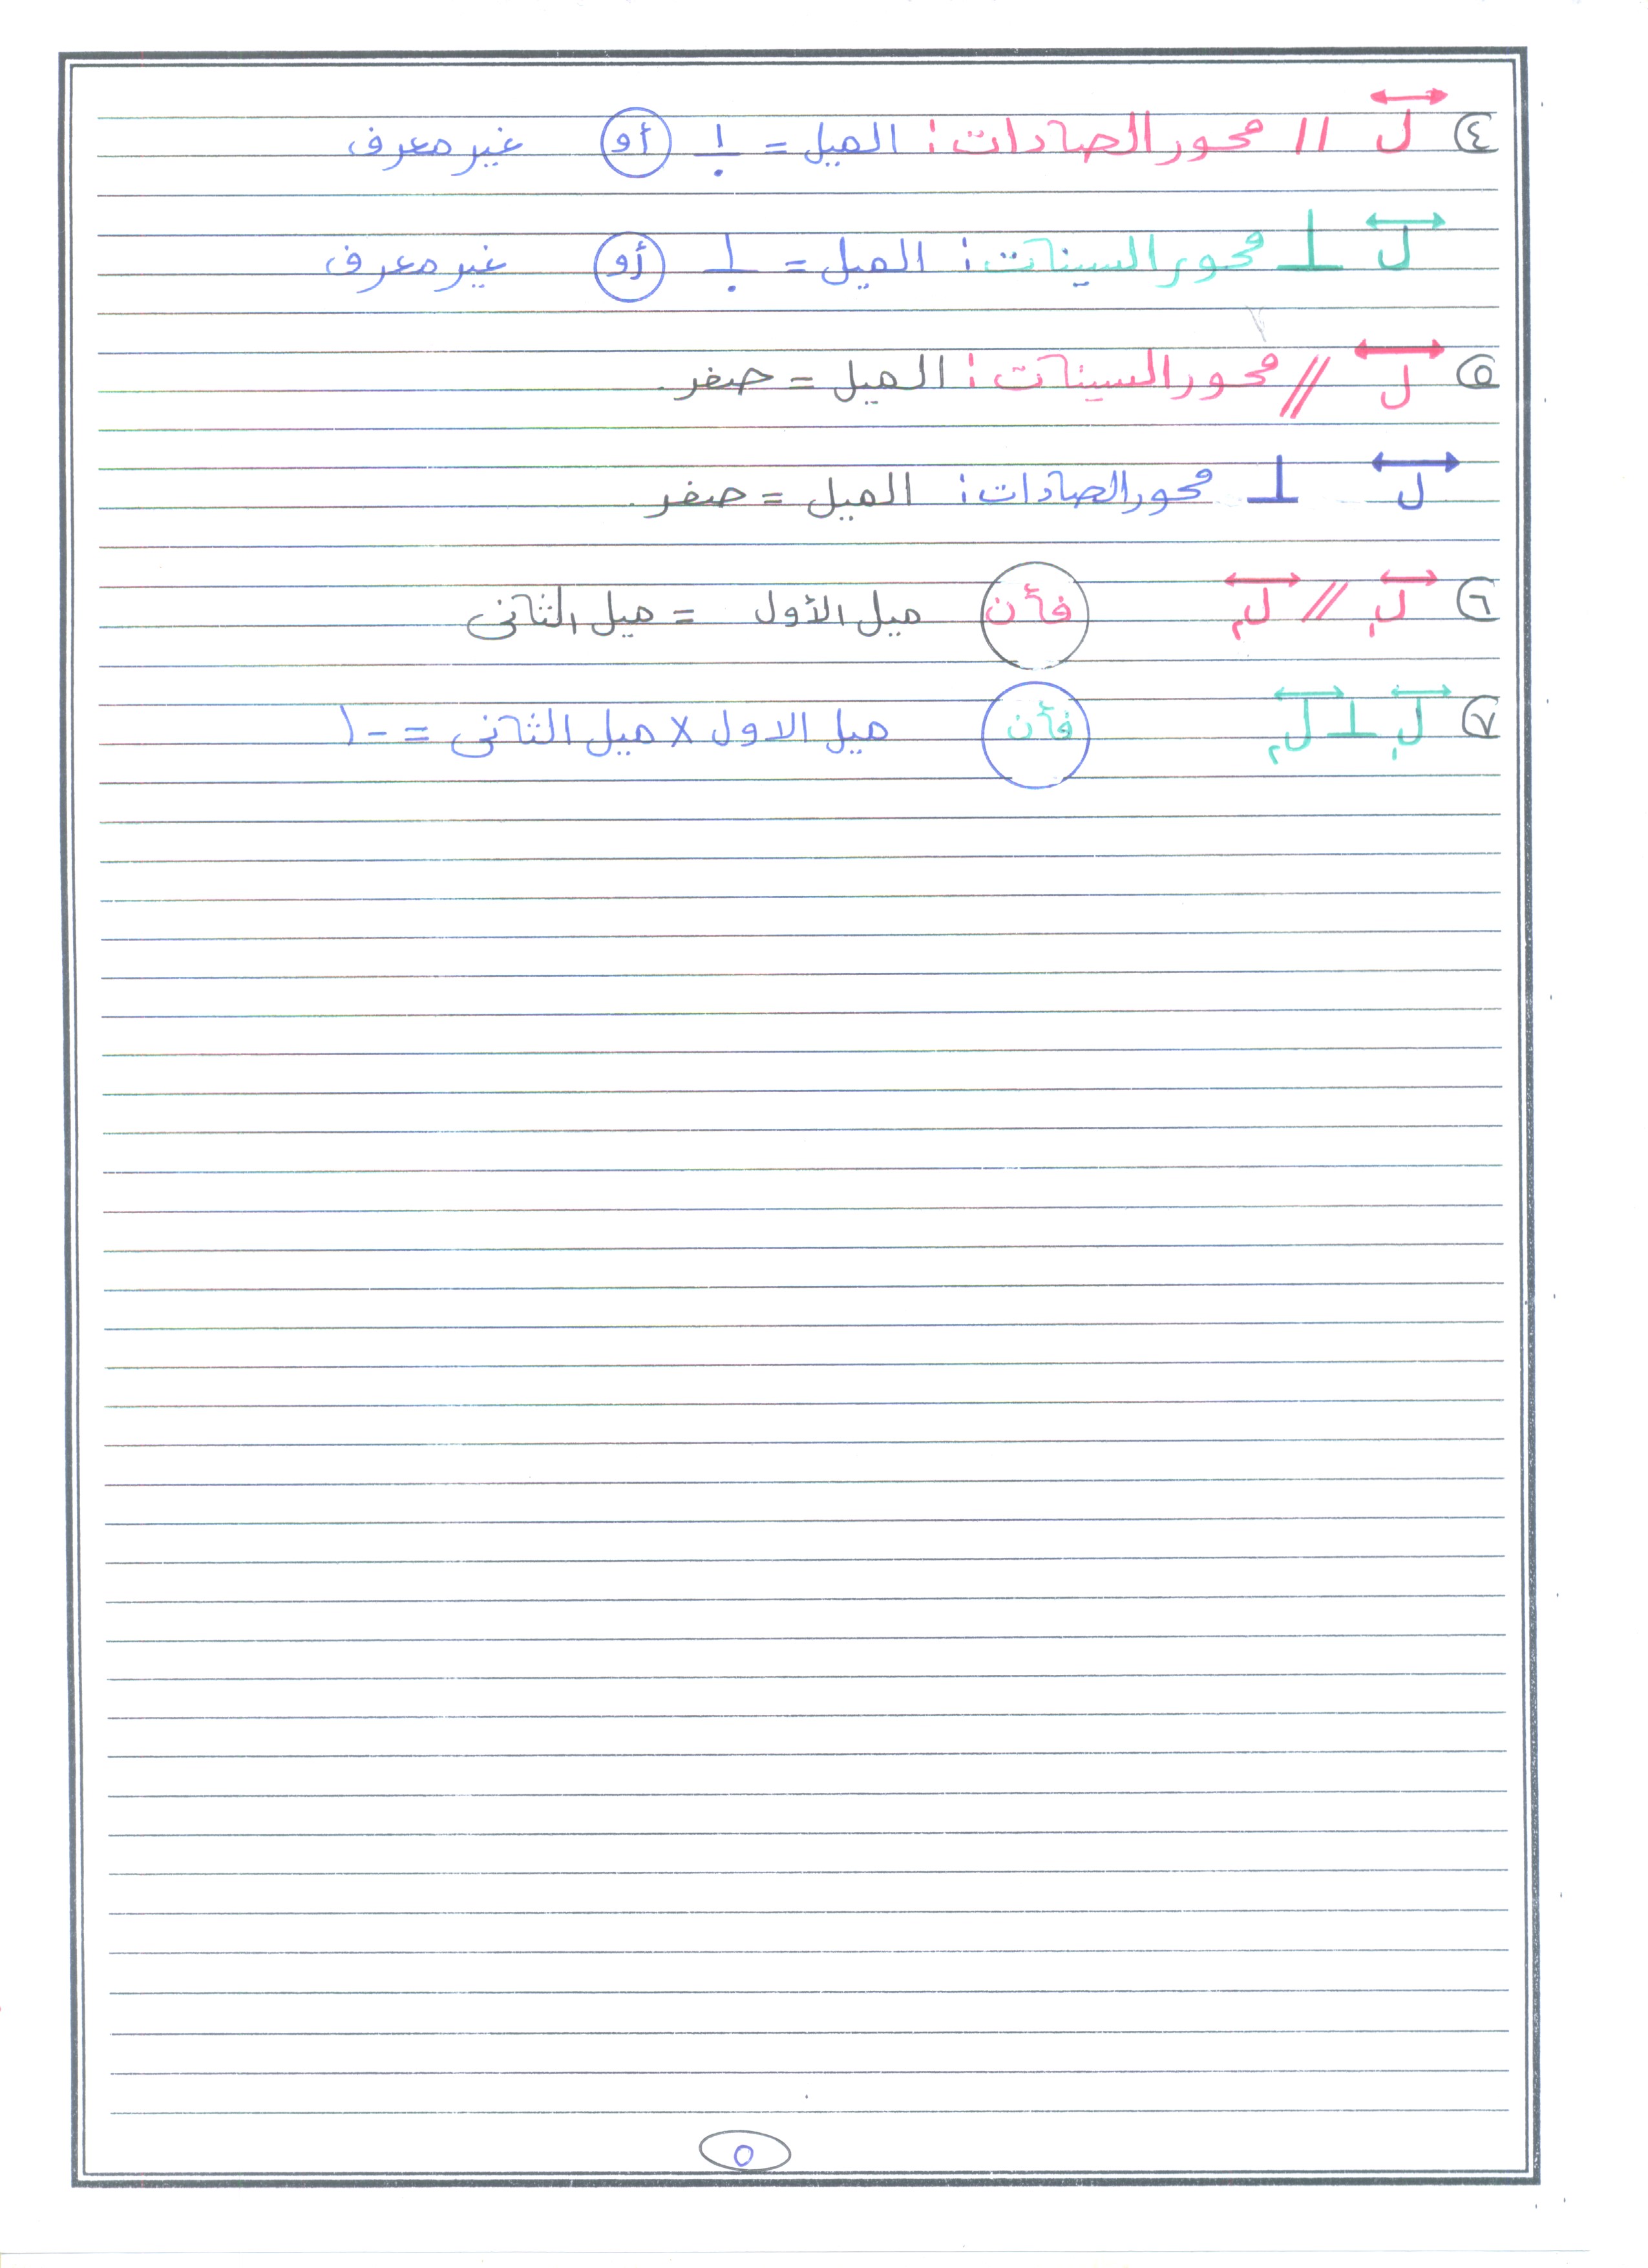 ٤ ل // محور الصادات : الميل = ١/٠ أو غير معرف
ل ⊥ محور السينات : الميل = ١/٠ أو غير معرف
٥ ل // محور السينات : الميل = صفر.
ل ⊥ محور الصادات : الميل = صفر.
٦ ل₁ // ل₂ فأن ميل الأول = ميل الثانى
٧ ل₁ ⊥ ل₂ فأن ميل الاول × ميل الثانى = -١
٥